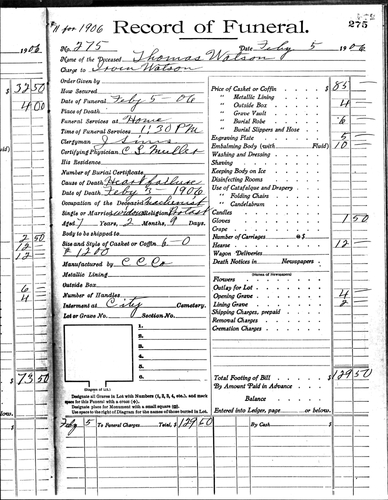 for 1906
Record of Funeral.
275
No. 275 Date Feby 5 1906
Name of the Deceased Thomas Watson
Charge to Irven Watson
Order Given by
How Secured
Date of Funeral Feby 5-06
Place of Death
Funeral Services at Home
Time of Funeral Services 1:30 PM
Clergyman J Sims
Certifying Physician C S Muller
His Residence
Number of Burial Certificate
Cause of Death Heart
Date of Death Feby 3 1906
Occupation of the Deceased Machinist
Single or Married widow Religion Protest
Aged 7 Years, 2 Months, 9 Days.
Body to be shipped to
Size and Style of Casket or Coffin 6-0
# 1200
Manufactured by C C Co
Metallic Lining
Outside Box
Number of Handles
Interment at City Cemetery.
Lot or Grave No. Section No.
1.
2.
3.
4.
5.
6.
(Diagram of Lot.)
Designate all Graves in Lot with Numbers (1, 2, 3, 4, etc.), and mark
space for this Funeral with a star.
Designate place for Monument with a small square
Use space to the right of Diagram for the names of those buried in Lot.
Price of Casket or Coffin $ 85
" Metallic Lining
" Outside Box 4
" Grave Vault
" Burial Robe 6
" Burial Slippers and Hose
Engraving Plate 5
Embalming Body (with Fluid) 10
Washing and Dressing
Shaving
Keeping Body on Ice
Disinfecting Rooms
Use of Catafalque and Drapery
" Folding Chairs
" Candelabrum
Candles
Gloves 1 50
Crape
Number of Carriages @ $
Hearse 12
Wagon Deliveries
Death Notices in Newspapers
(Names of Newspapers)
Flowers
Outlay for Lot
Opening Grave 4
Lining Grave 2
Shipping Charges, prepaid
Removal Charges
Cremation Charges
Total Footing of Bill $ 129 50
By Amount Paid in Advance
Balance
Entered into Ledger, page or below.
Feby 5 To Funeral Charges Total, $ 129 50 By Cash $
1906
32 50
4 00
2 50
12
12
6
4
$ 73 50
low.
$